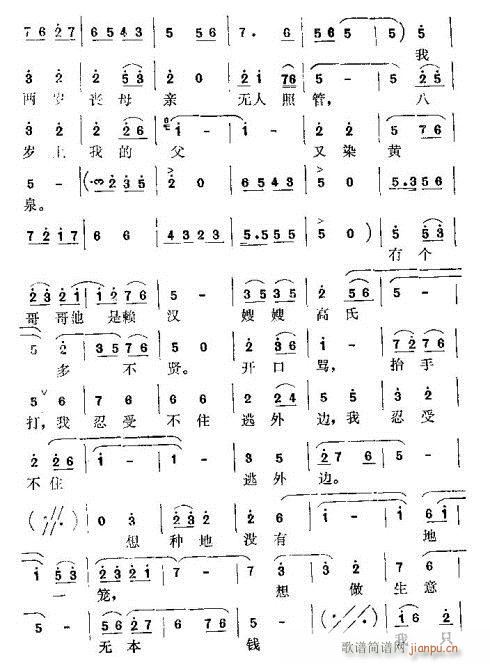 7 6 2 7 | 6 5 4 3 | 5 5 6 | 7 . 6 | 5 6 5 | 5 ) 5 |
我
3 2 | 2 5 3 | 2 0 | 2 1 7 6 | 5 - | 5 2 5 |
两岁丧母亲 无人照管， 八
3 2 | 2 2 6 | 1 - | 1 - | 2 2 | 5 7 6 |
岁上我的父 又染黄
5 - | ( 3 2 3 5 | 2 0 | 6 5 4 3 | 5 0 | 5 . 3 5 6 |
泉。
7 2 1 7 | 6 6 | 4 3 2 3 | 5 . 5 5 5 | 5 0 ) | 5 5 3 |
有个
2 3 2 1 | 1 2 7 6 | 5 - | 3 5 3 5 | 2 5 6 | 5 - |
哥哥他是赖汉 嫂嫂高氏
5 2 | 3 5 7 6 | 5 - | 2 3 6 | 1 - | 7 2 7 6 |
多不贤。 开口骂， 抬手
5 6 | 7 2 7 6 | 5 5 | 2 2 4 | 3 5 | 2 3 2 7 |
打，我忍受不住逃外边，我忍受
2 2 6 | 1 - | 1 - | 3 5 | 2 7 6 | 5 - |
不住 逃外边。
0 3 | 2 3 2 | 1 2 | 1 - | 6 1 |
想种地没有 地
1 5 3 | 2 3 2 1 | 7 - | 7 3 | 5 7 | 6 1 6 |
一笼， 想做生意
5 - | 5 2 6 | 7 6 7 | 5 - | 1 6 2 |
无本钱 我只
歌谱简谱网 jianpu.cn